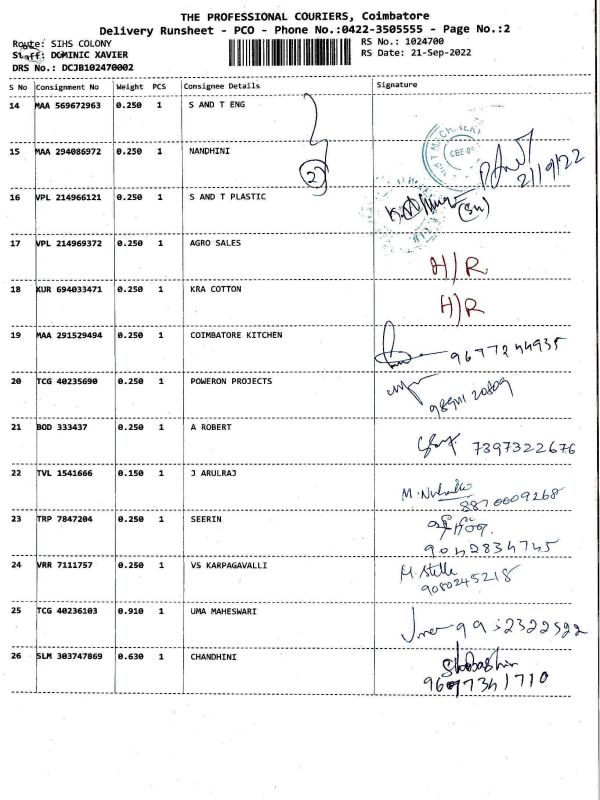 THE PROFESSIONAL COURIERS, Coimbatore
Delivery Runsheet - PCO - Phone No.:0422-3505555 - Page No.:2
Route: SIHS COLONY
Staff: DOMINIC XAVIER
DRS No.: DCJB102470002
RS No.: 1024700
RS Date: 21-Sep-2022
S No Consignment No Weight PCS Consignee Details Signature
14 MAA 569672963 0.250 1 S AND T ENG
15 MAA 294086972 0.250 1 NANDHINI
2
CBE-05
21/9/22
16 VPL 214966121 0.250 1 S AND T PLASTIC
17 VPL 214969372 0.250 1 AGRO SALES H/R
18 KUR 694033471 0.250 1 KRA COTTON H/R
19 MAA 291529494 0.250 1 COIMBATORE KITCHEN 9677244935
20 TCG 40235690 0.250 1 POWERON PROJECTS
21 BOD 333437 0.250 1 A ROBERT 7397322676
22 TVL 1541666 0.150 1 J ARULRAJ 8870009268
23 TRP 7847204 0.250 1 SEERIN
9042834745
24 VRR 7111757 0.250 1 VS KARPAGAVALLI M. Stella
9080245218
25 TCG 40236103 0.910 1 UMA MAHESWARI
26 SLM 303747869 0.630 1 CHANDHINI